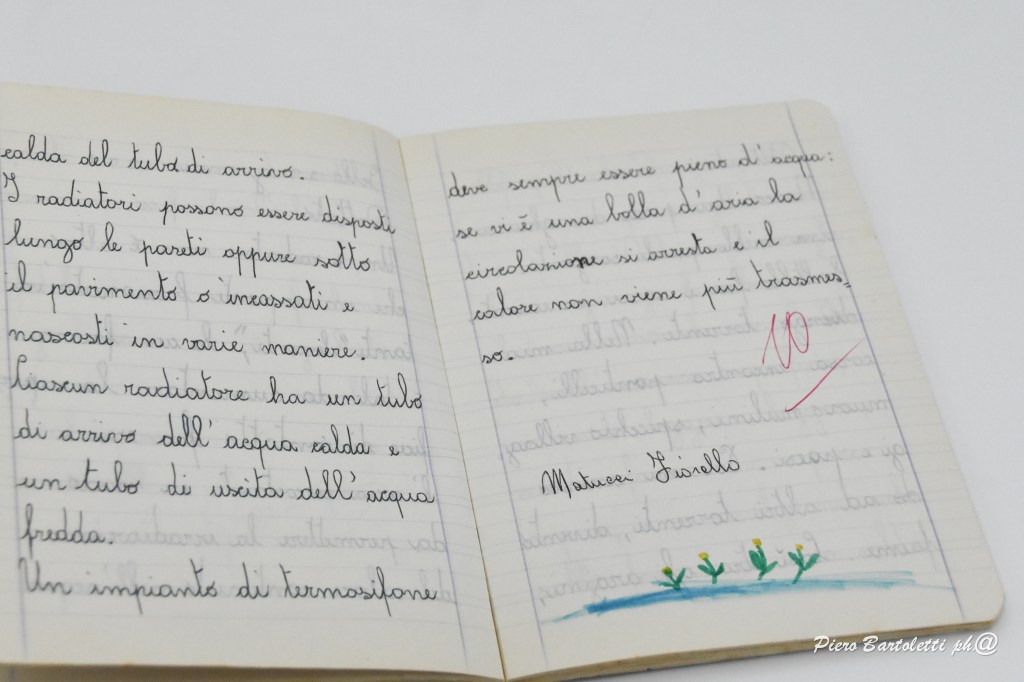 calda del tubo di arrivo.
I radiatori possono essere disposti
lungo le pareti oppure sotto
il pavimento o incassati e
nascosti in varie maniere.
Ciascun radiatore ha un tubo
di arrivo dell' acqua calda e
un tubo di uscita dell' acqua
fredda.
Un impianto di termosifone
deve sempre essere pieno d' acqua:
se vi è una bolla d' aria la
circolazione si arresta e il
calore non viene più trasmes=
so.
10
Matucci Fiorello
Piero Bartoletti ph@